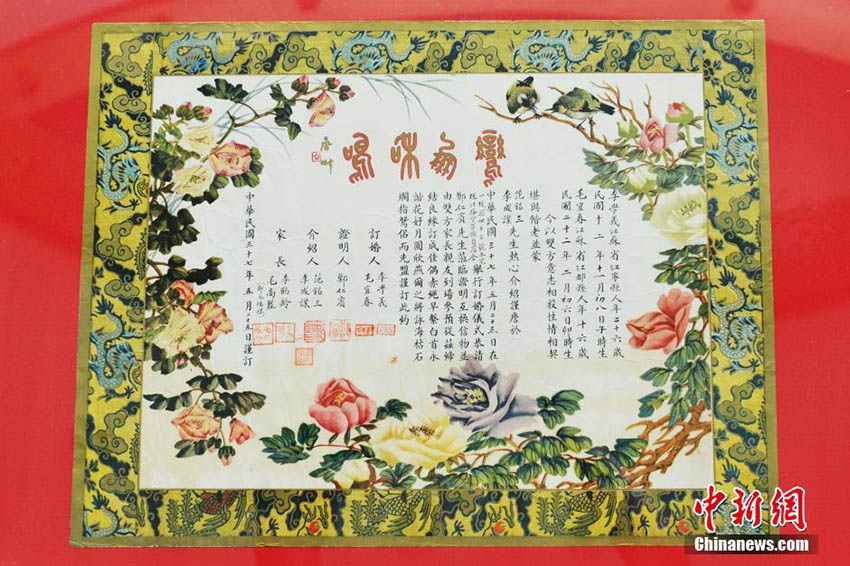 鸞鳳和鳴
李學義江蘇省江寧縣人年二十六歲
民國十二年十一月初八日子時生
毛宜春江蘇省江都縣人年十六歲
民國二十二年二月初六日卯時生
今以雙方意志相投性情相契
堪與偕老並蒙
范銘三先生熱心介紹謹詹於
李成謀
中華民國三十七年五月二十五日在
舉行訂婚儀式恭請
鄭仁賓先生蒞臨證明互換信物並
由雙方家長親友到場參預從茲締
結良緣訂成佳偶赤繩早繫白首永
諧花好月圓欣燕爾之將詠海枯石
爛指鴛侶而先盟謹訂此約
訂婚人 李學義
毛宜春
證明人 鄭仁賓
介紹人 李成謀
范銘三
家長 李鶴齡
毛高
中華民國三十七年五月二十五日謹訂
中新网
Chinanews.com